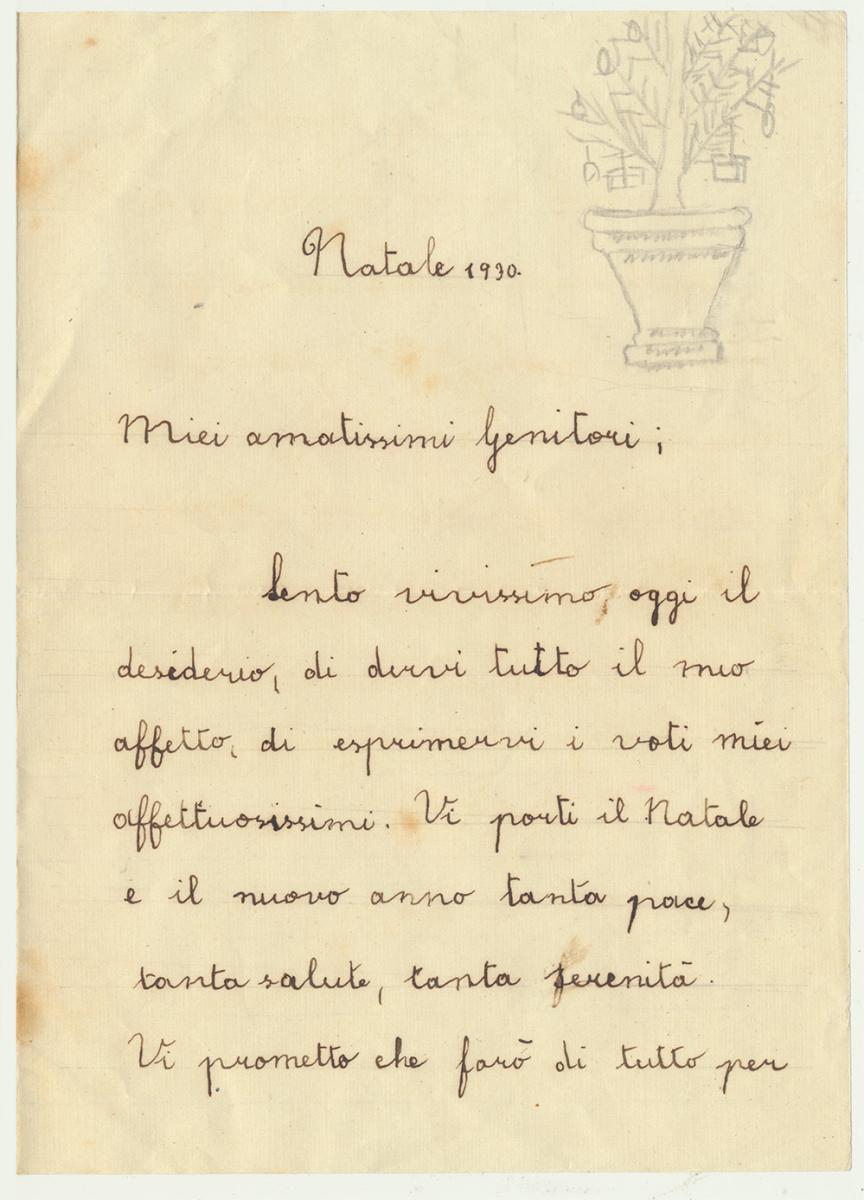 Natale 1930.
Miei amatissimi Genitori;
Sento vivissimo, oggi il
desiderio, di dirvi tutto il mio
affetto, di esprimervi i voti miei
affettuosissimi. Vi porti il Natale
e il nuovo anno tanta pace,
tanta salute, tanta serenità.
Vi prometto che farò di tutto per